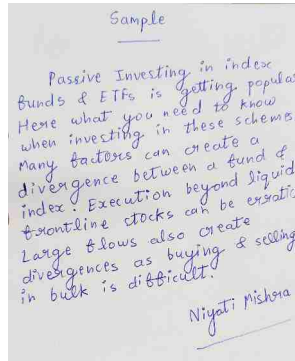 Sample
Passive Investing in index
funds & ETFs is getting popula
Here what you need to know
when investing in these schemes
Many factors can create a
divergence between a fund &
index. Execution beyond liquid
frontline stocks can be erratic
Large flows also create
divergences as buying & selling
in bulk is difficult.
Niyati Mishra